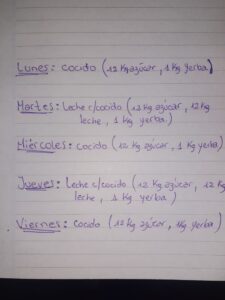 Lunes: cocido (12 Kg azúcar, 1 Kg yerba)
Martes: Leche c/cocido (12 Kg azúcar, 12 Kg
leche, 1 Kg yerba.)
Miércoles: cocido (12 Kg azúcar, 1 Kg yerba)
Jueves: Leche c/cocido (12 Kg azúcar, 12 Kg
leche, 1 Kg yerba)
Viernes: cocido (12 Kg azúcar, 1Kg yerba)